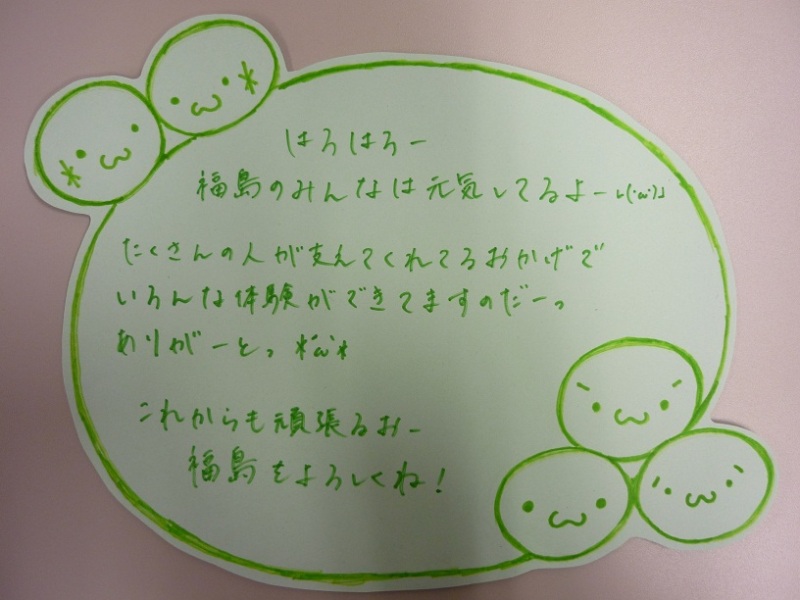 はろはろー
福島のみんなは元気してるよー└(・ω・)┘
たくさんの人が支えてくれてるおかげで
いろんな体験ができてますのだーっ
ありがーとっ *´ω`*
これからも頑張るおー
福島をよろしくね!